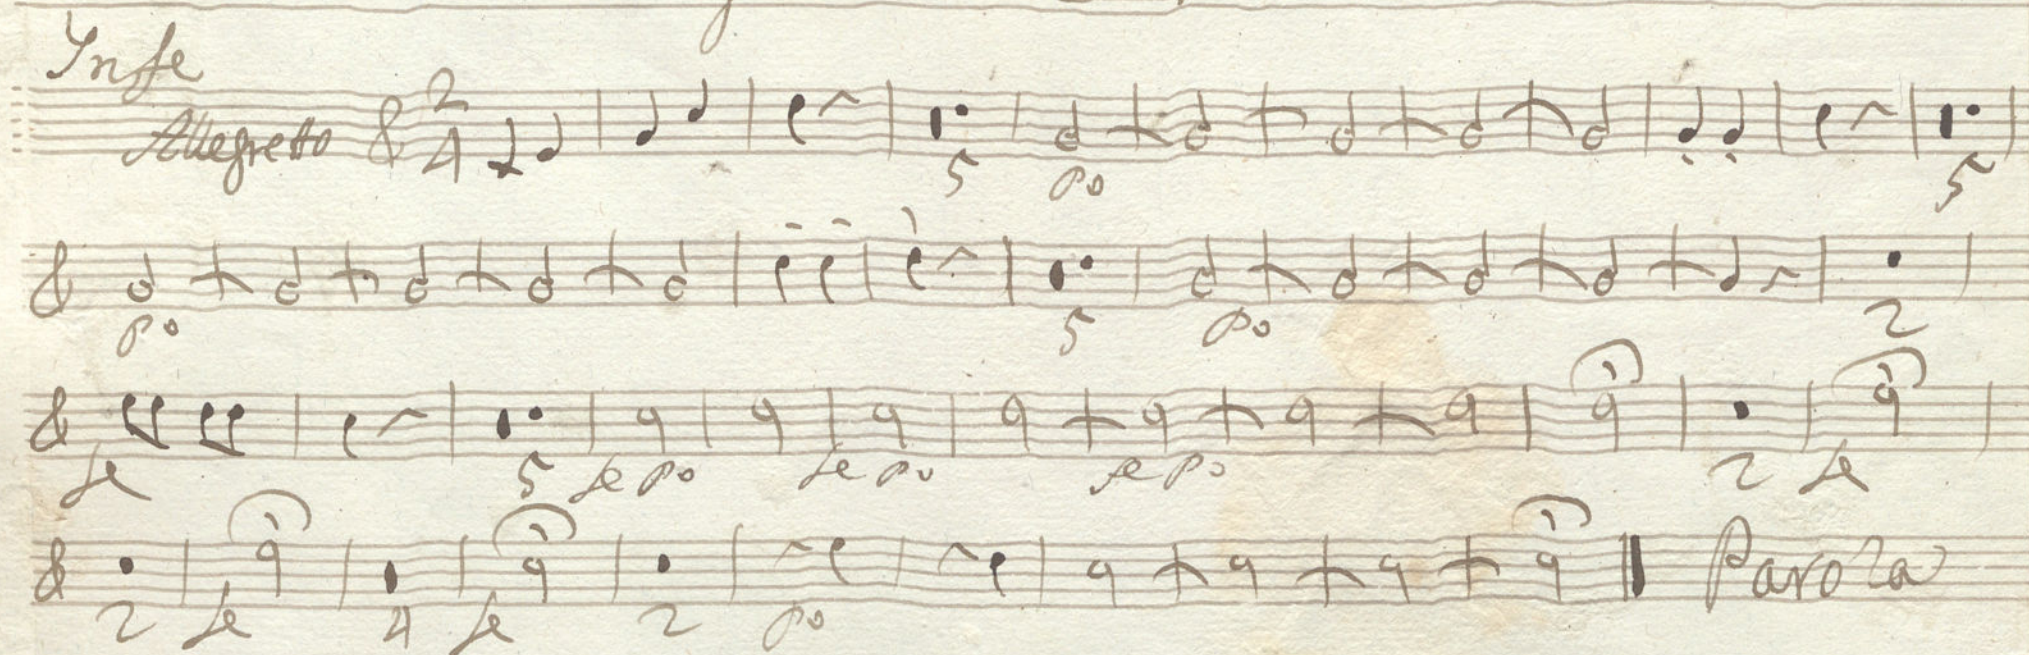 In fe
Allegretto 2 4
5 po 5
po 5 po 2
fe 5 fe po fe po fe po 2 fe
2 fe 4 fe 2 po Parola